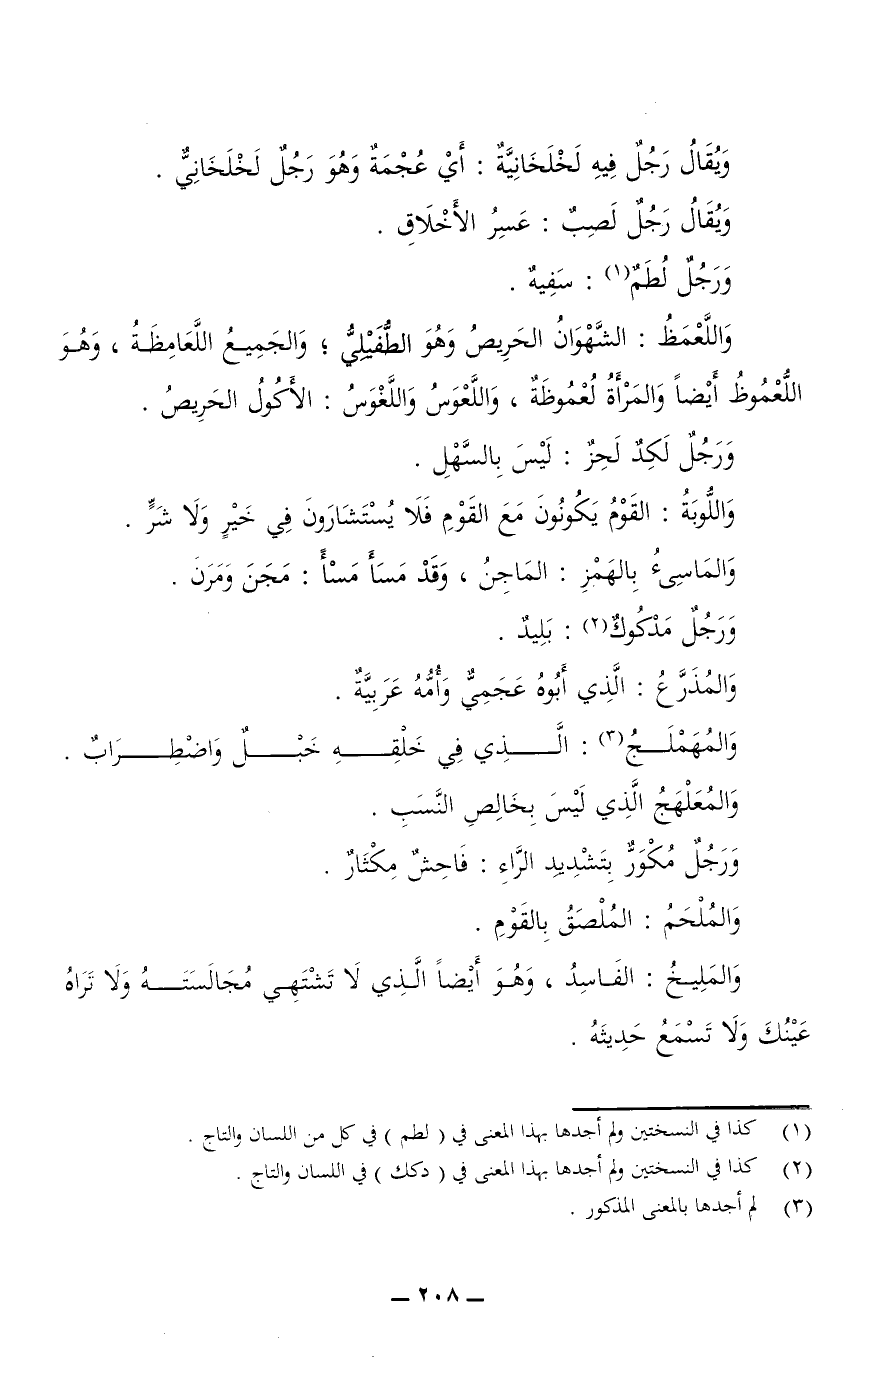 وَيُقَالُ رَجُلٌ فِيهِ لَخْلَخَانِيَّةٌ : أَيْ عُجْمَةٌ وَهُوَ رَجُلٌ لَخْلَخَانِيٌّ .
وَيُقَالُ رَجُلٌ لَصِبٌ : عَسِرُ الأَخْلَاقِ .
وَرَجُلٌ لُطَمٌ(١) : سَفِيهٌ .
وَاللَّعْمَظُ : الشَّهْوَانُ الحَرِيصُ وَهُوَ الطُّفَيْلِيُّ ؛ وَالجَمِيعُ اللَّعَامِظَةُ ، وَهُوَ
اللُّعْمُوظُ أَيْضاً وَالمَرْأَةُ لُعْمُوظَةٌ ، وَاللَّعْوَسُ وَاللَّغْوَسُ : الأَكُولُ الحَرِيصُ .
وَرَجُلٌ لَكِدٌ لَحِزٌ : لَيْسَ بِالسَّهْلِ .
وَاللُّوبَةُ : القَوْمُ يَكُونُونَ مَعَ القَوْمِ فَلَا يُسْتَشَارَونَ فِي خَيْرٍ وَلَا شَرٍّ .
وَالمَاسِىءُ بِالهَمْزِ : المَاجِنُ ، وَقَدْ مَسَأَ مَسْأً : مَجَنَ وَمَرَنَ .
وَرَجُلٌ مَدْكُوكٌ(٢) : بَلِيدٌ .
وَالمُذَرَّعُ : الَّذِي أَبُوهُ عَجَمِيٌّ وَأُمُّهُ عَرَبِيَّةٌ .
وَالمُهَمْلَجُ(٣) : الَّذِي فِي خَلْقِهِ خَبْلٌ وَاضْطِرَابٌ .
وَالمُعَلْهَجُ الَّذِي لَيْسَ بِخَالِصِ النَّسَبِ .
وَرَجُلٌ مُكْوَرٌّ بِتَشْدِيدِ الرَّاءِ : فَاحِشٌ مِكْثَارٌ .
وَالمُلْحَمُ : المُلْصَقُ بِالقَوْمِ .
وَالمَلِيخُ : الفَاسِدُ ، وَهُوَ أَيْضاً الَّذِي لَا تَشْتَهِي مُجَالَسَتَهُ وَلَا تَرَاهُ
عَيْنُكَ وَلَا تَسْمَعُ حَدِيثَهُ .
(١) كذا في النسختين ولم أجدها بهذا المعنى في ( لطم ) في كل من اللسان والتاج .
(٢) كذا في النسختين ولم أجدها بهذا المعنى في ( دكك ) في اللسان والتاج .
(٣) لم أجدها بالمعنى المذكور .
ــ ٢٠٨ ــ